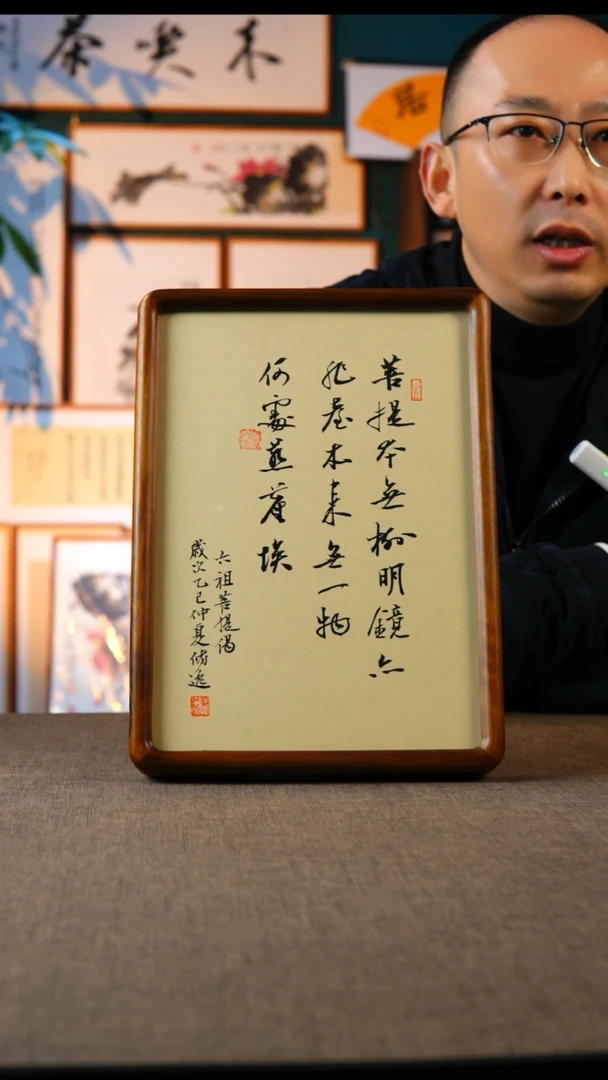 喫茶
居
菩提本無樹明鏡亦
非臺本来無一物
何處惹塵埃
六祖菩提偈
歲次乙巳仲夏脩逸